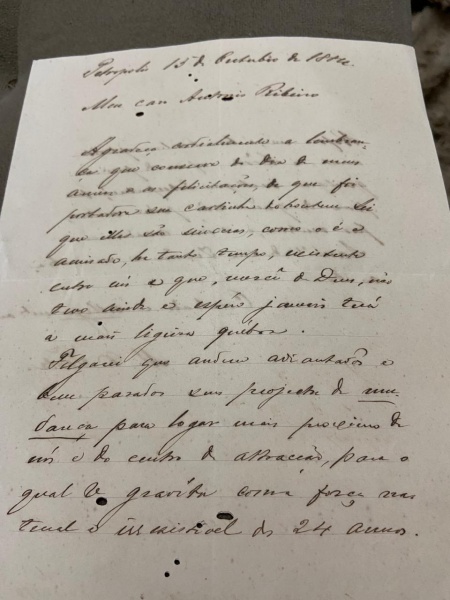 Petropolis 15 de Outubro de
Meu caro Antonio Ribeiro
Agradeço a lembran-
ça que conserva do dia de meus
annos e as felicitações, de que foi
portadora sua cartinha de hontem. Sei
que ellas são sinceras, como o é a
amisade, ha tanto tempo, existente
entre nós e que, mercê de Deus, não
teve ainda e espero jamais terá
a mais ligeira quebra.
Folgarei que andem adiantados e
bem parados seus projectos de mu-
dança para logar mais proximo de
nós e do centro de attracção, para o
qual V. gravita com a força na-
tural e irresistivel dos 24 annos.